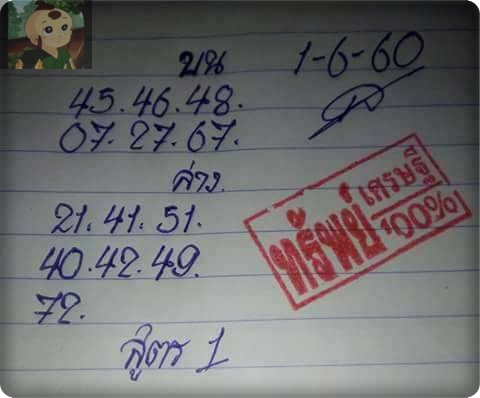 บน 1-6-60
45. 46. 48.
07. 27. 67.
ล่าง.
21. 41. 51.
40. 42. 49.
72.
สูตร 1
ทรัพย์เศรษฐี
100%